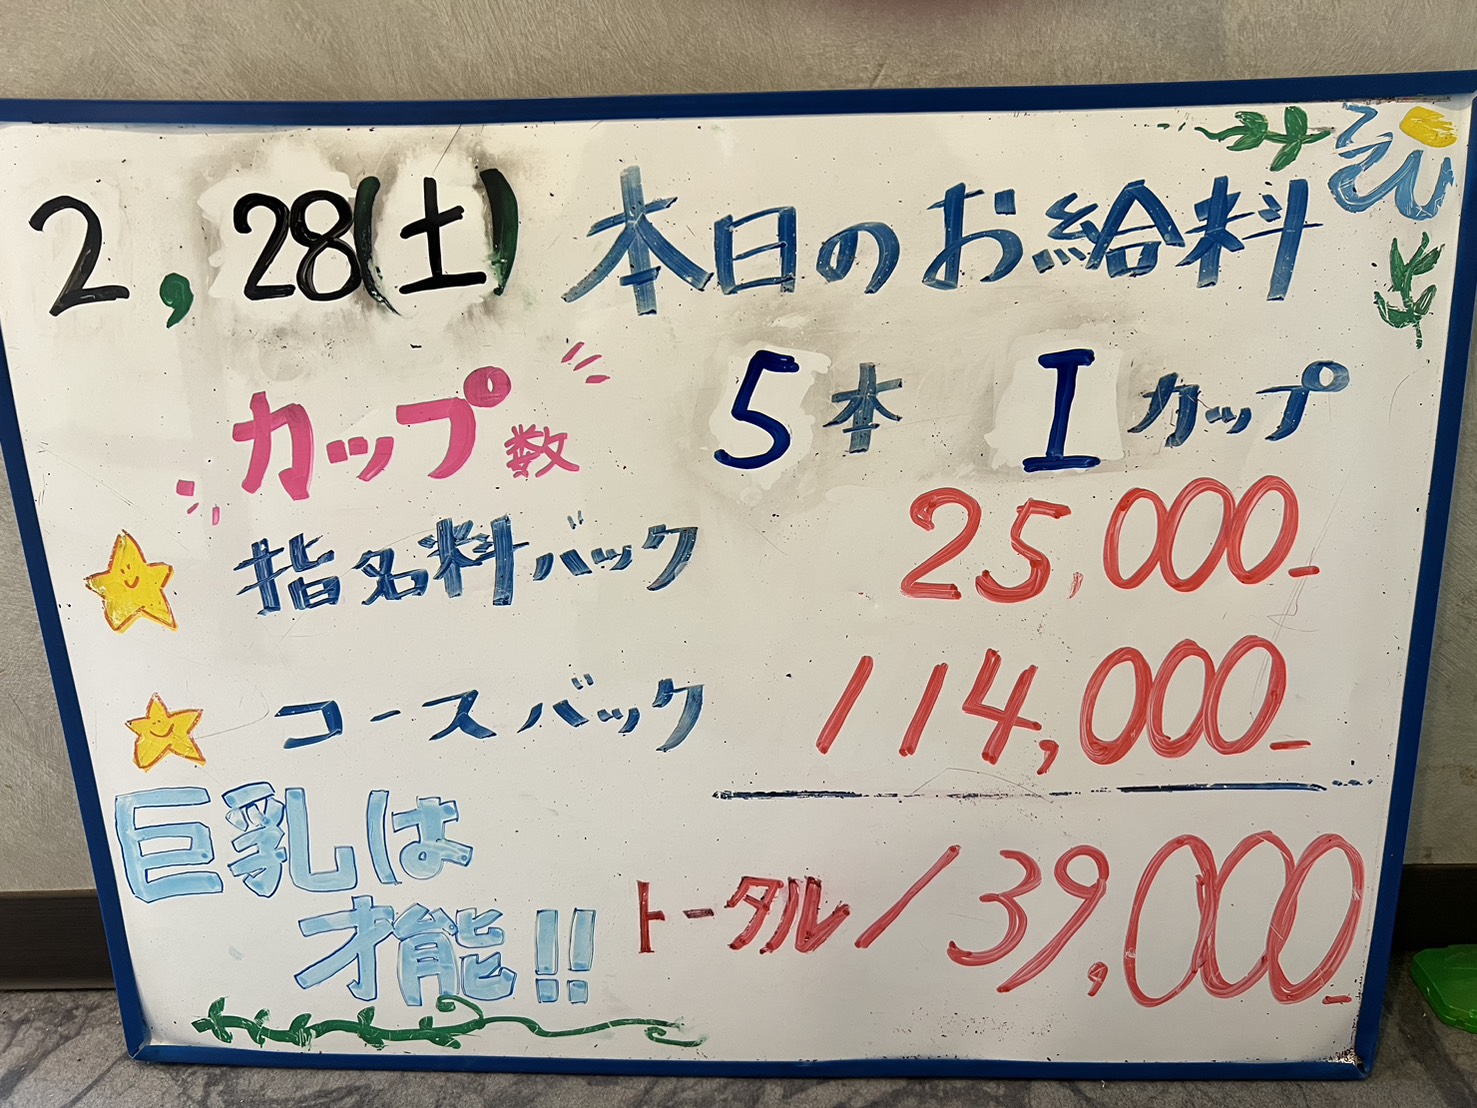 2,28(土) 本日のお給料
カップ数 5本 Iカップ
指名料バック 25,000-
コースバック 114,000-
巨乳は
才能!!
トータル 139,000-